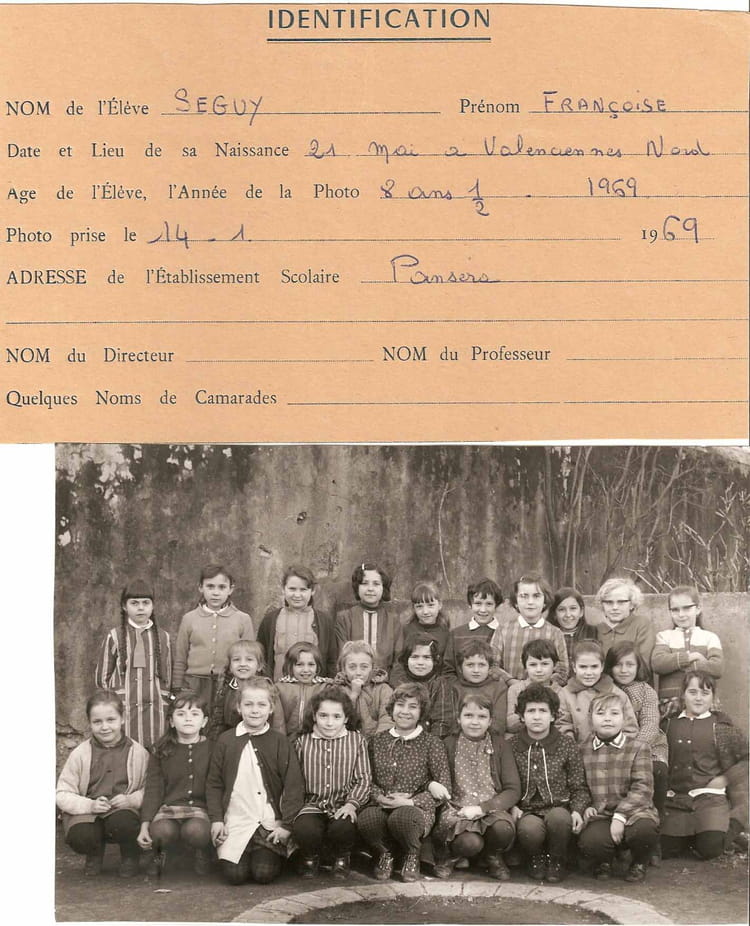 IDENTIFICATION
NOM de l'Élève SEGUY Prénom FRANÇOISE
Date et Lieu de sa Naissance 21 Mai à Valenciennes Nord
Age de l'Élève, l'Année de la Photo 8 ans 1/2 - 1969
Photo prise le 14 - 1. 1969
ADRESSE de l'Établissement Scolaire Pansera
NOM du Directeur NOM du Professeur
Quelques Noms de Camarades